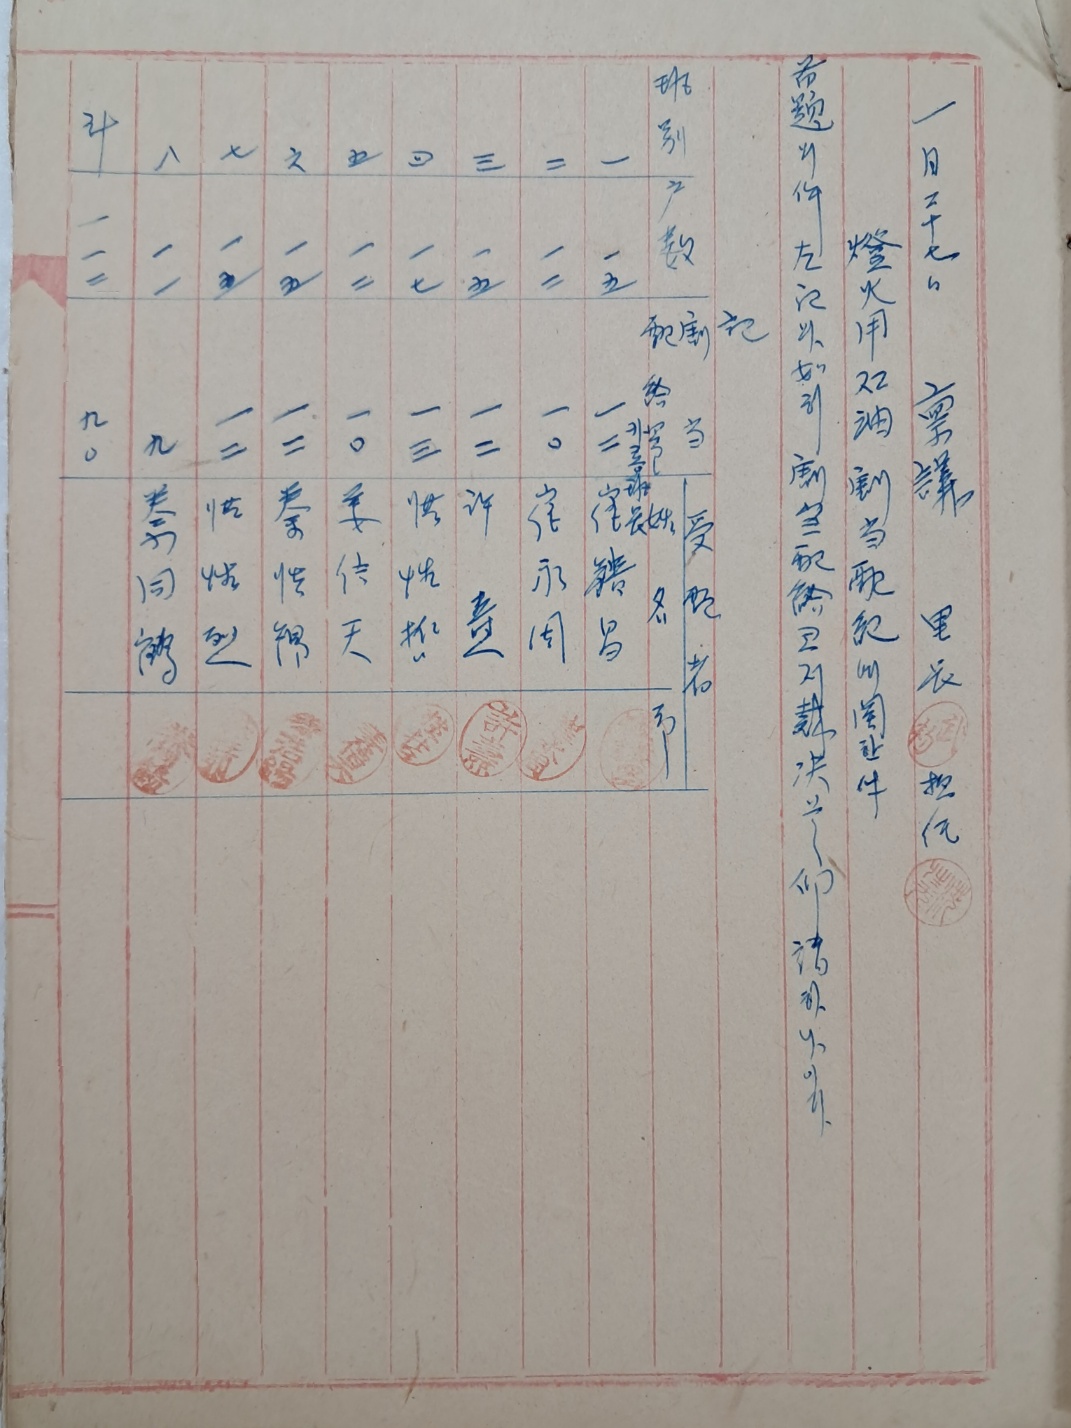 一月二十七日 稟議 里長 担任
燈火用石油割当配給에関한件
首題의件左記와如히割当配給코저裁決을仰請하나이다
記
班別 戶数 割当配給 受配者 姓名 印
一 一五 一二 崔 昌
二 一二 一〇 崔永周
三 一五 一二 許
四 一七 一三 洪性哲
五 一二 一〇 姜信天
六 一五 一二 秦性
七 一五 一二 洪性烈
八 一一 九 秦同鶴
計 一一二 九〇